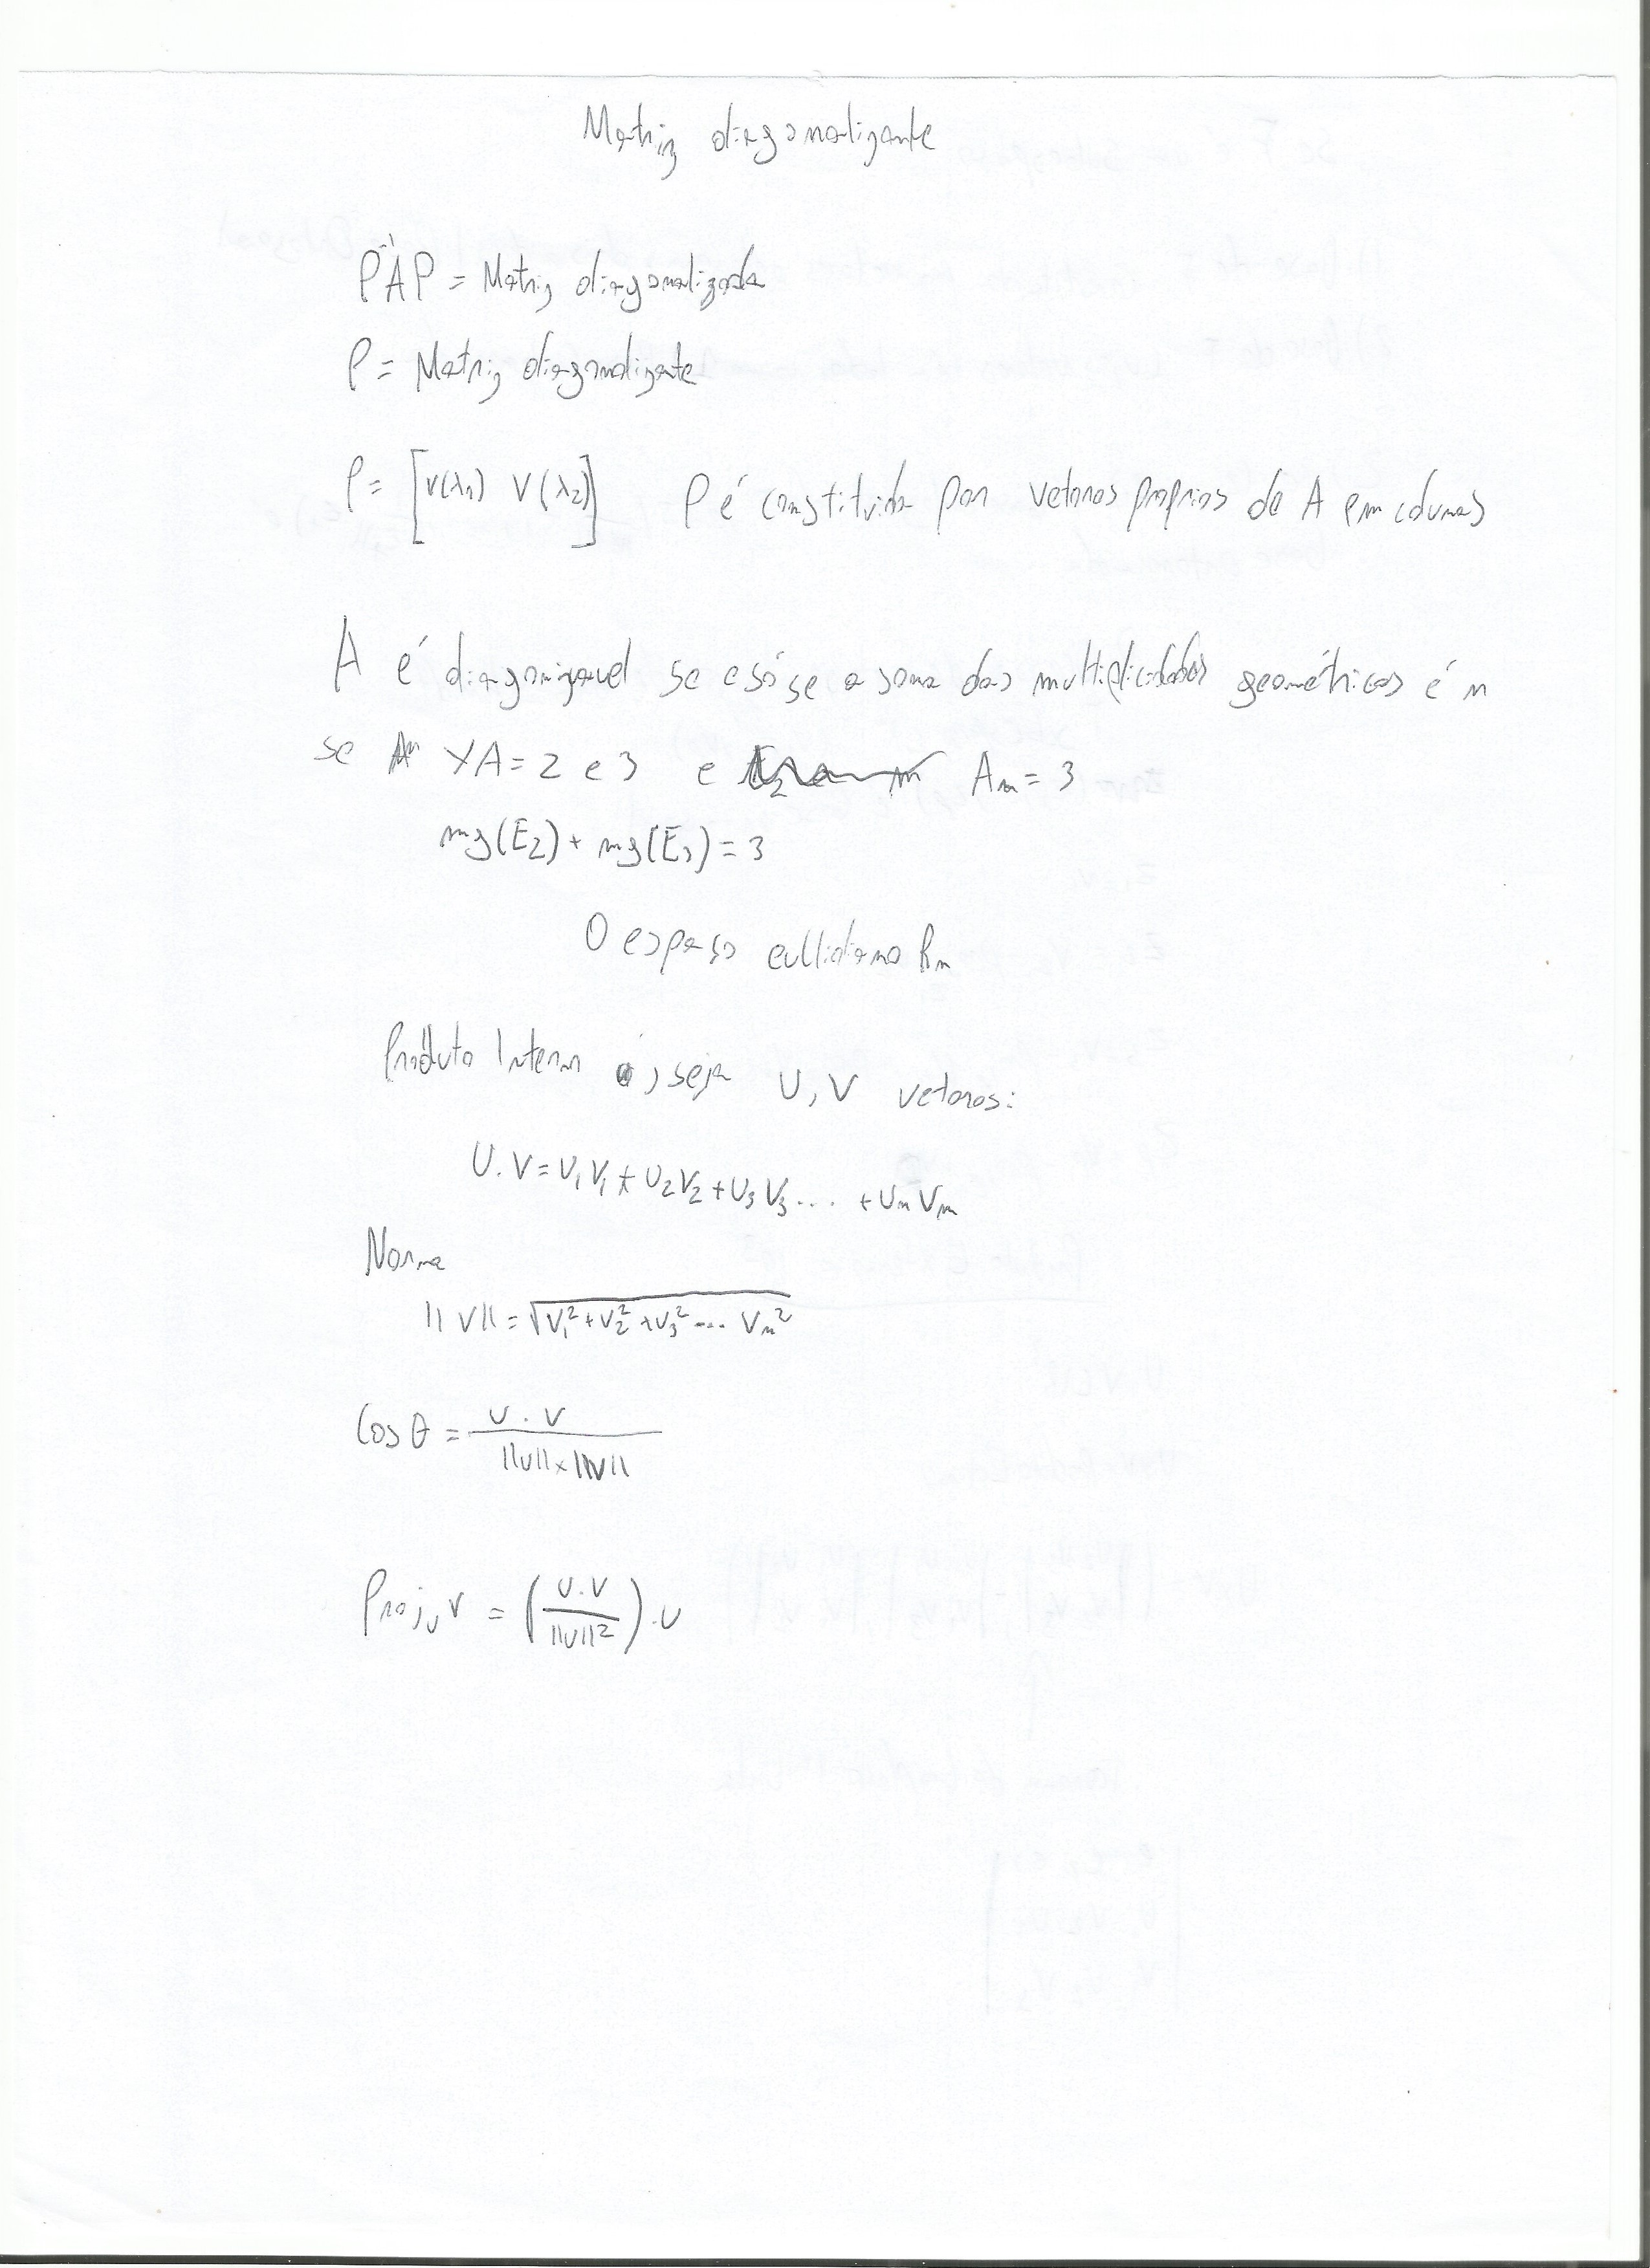 Matriz diagonalizante
P⁻¹AP = Matriz diagonalizada
P = Matriz diagonalizante
P = [v(λ₁) v(λ₂)] P é constituida por vetores proprios de A em colunas
A é diagonizavel se e só se a soma das multiplicidades geométricas é n
se λA = 2 e 3 e Aₙ = 3
mg(E₂) + mg(E₃) = 3
O espaso euclidiano Rₙ
Produto Interno , seja U, V vetores:
U.V = U₁V₁ + U₂V₂ + U₃V₃ ... + UₙVₙ
Norma
||V|| = √V₁² + V₂² + V₃² ... Vₙ²
Cos θ = U.V / ||U||x||V||
Projᵤ V = (U.V / ||U||²).U